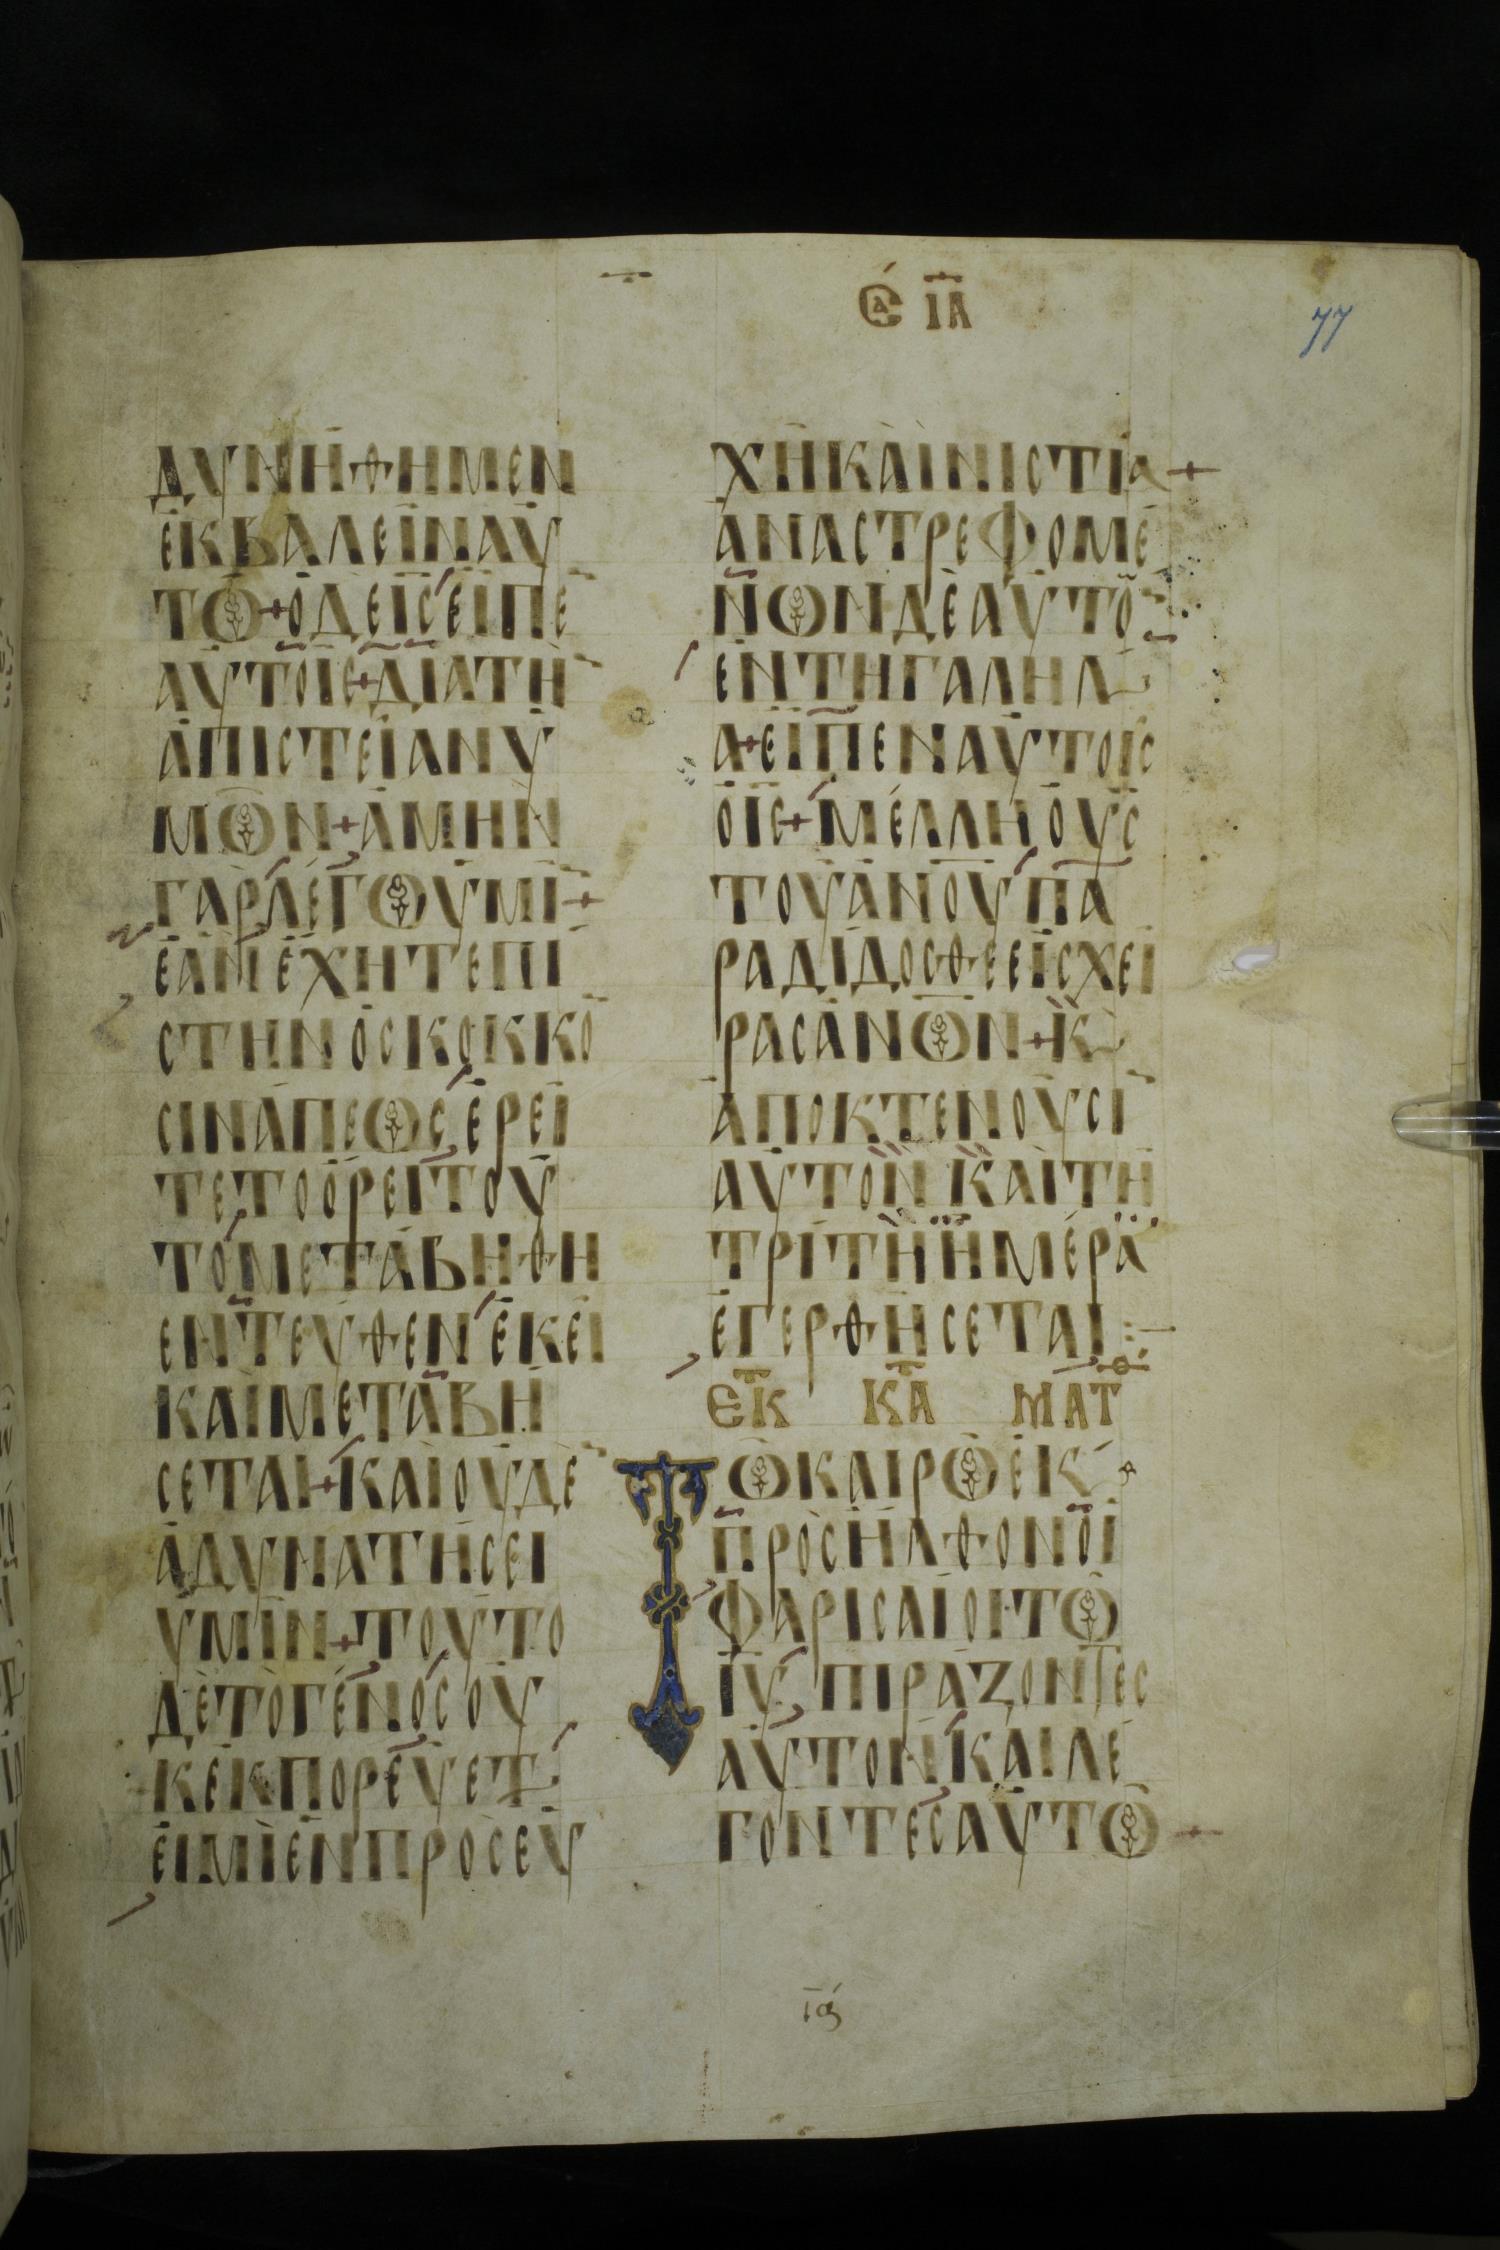 ΕΑ ΙΑ
77
ΔΥΝΗΘΗΜΕΝ
ΕΚΒΑΛΕΙΝΑΥ
ΤΩ+ΟΔΕΙΣΕΙΠΕ
ΑΥΤΟΙΣ+ΔΙΑΤΗ
ΑΠΙΣΤΕΙΑΝΥ
ΜΩΝ+ΑΜΗΝ
ΓΑΡΛΕΓΩΥΜΙ+
ΕΑΝΕΧΗΤΕΠΙ
ΣΤΗΝΟΣΚΟΚΚΟ
ΣΙΝΑΠΕΩΣΕΡΕΙ
ΤΕΤΟΟΡΕΙΤΟΥ
ΤΟΜΕΤΑΒΗΘΗ
ΕΝΤΕΥΘΕΝΕΚΕΙ
ΚΑΙΜΕΤΑΒΗ
ΣΕΤΑΙ+ΚΑΙΟΥΔΕ
ΑΔΥΝΑΤΗΣΕΙ
ΥΜΙΝ+ΤΟΥΤΟ
ΔΕΤΟΓΕΝΟΣΟΥ
ΚΕΚΠΟΡΕΥΕΤ
ΕΙΜΙΕΝΠΡΟΣΕΥ
ΧΗΚΑΙΝΙΣΤΙΑ+
ΑΝΑΣΤΡΕΦΟΜΕ
ΝΩΝΔΕΑΥΤΟ
ΕΝΤΗΓΑΛΗΛ
Α+ΕΙΠΕΝΑΥΤΟΙΣ
ΟΙΣ+ΜΕΛΛΗΟΥΣ
ΤΟΥΑΝΟΥΠΑ
ΡΑΔΙΔΟΣΘΕΕΙΣΧΕΙ
ΡΑΣΑΝΩΝ+Κ
ΑΠΟΚΤΕΝΟΥΣΙ
ΑΥΤΟΝΚΑΙΤΗ
ΤΡΙΤΗΗΜΕΡΑ
ΕΓΕΡΘΗΣΕΤΑΙ:
ΕΚ ΚΑ ΜΑΤ
ΤΩΚΑΙΡΩΕΚ
ΠΡΟΣΗΛΘΟΝΟΙ
ΦΑΡΙΣΑΙΟΙΤΩ
ΙΥ ΠΙΡΑΖΟΝΤΕΣ
ΑΥΤΟΝΚΑΙΛΕ
ΓΟΝΤΕΣΑΥΤΩ+